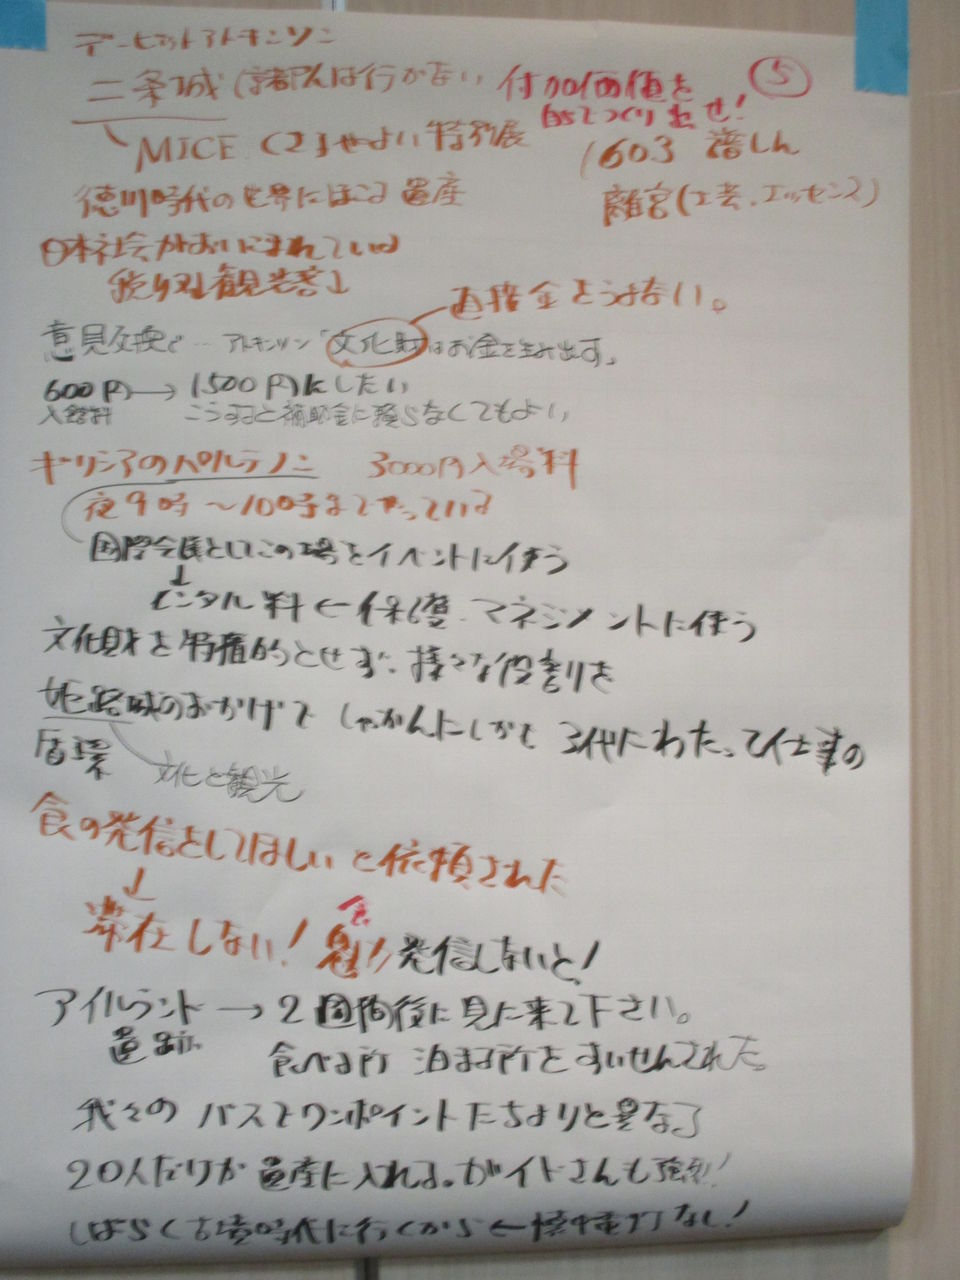 デービットアトキンソン
二条城 京都人は行かない 付加価値を
つくり出せ! ⑤
MICE くさまやよい特別展 1603
徳川時代の世界にほこる遺産 離宮(工芸.エッセンス)
日本社会がおいこまれている
税収↓観光客↓
直接金とらない。
意見交換で… アトキンソン「文化財はお金を生み出す」
600円→1500円にしたい
入館料 こうすると補助金に頼らなくてもよい
ギリシアのパルテノン 3000円入場料
夜9時〜10時までやっている
国際会議としてこの場をイベントに使う
↓
レンタル料←保護.マネジメントに使う
文化財を特権的とせず、様々な役割りを
姫路城のおかげで しゃかんにしかも 3代にわたって仕事の
循環 文化と観光
食の発信をしてほしいと依頼された
↓
滞在しない! 食 発信しないと!
アイルランド→2 時間後に見に来て下さい。
遺跡 食べる所 泊まる所をすいせんされた。
我々の バスでワンポイントたちよりと異なる
20人だけが 遺産に入れる。ガイドさんも強烈!
しばらく古墳時代に行くから←懐中電灯なし!